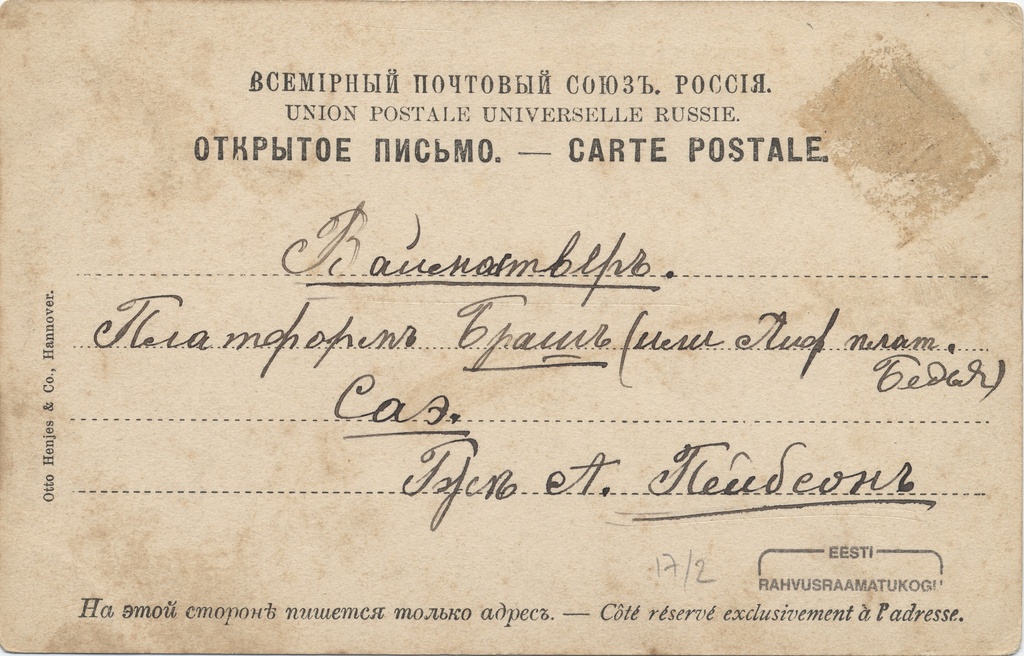 ВСЕМІРНЫЙ ПОЧТОВЫЙ СОЮЗЪ. РОССІЯ.
UNION POSTALE UNIVERSELLE RUSSIE.
ОТКРЫТОЕ ПИСЬМО. — CARTE POSTALE.
Вайматверъ.
Платформъ Брашъ (или Лиф плат.
Бедья)
Саэ.
А. Пейбсонъ
Otto Henjes & Co., Hannover.
17/2
EESTI
RAHVUSRAAMATUKOGU
На этой сторонѣ пишется только адресъ. — Côté réservé exclusivement à l'adresse.